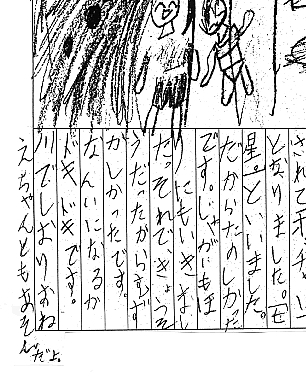 されてチャチャ」
となりました。「百
星。」といいました。
だからたのしかった
です。じゃがいもほ
りにもいきまし
た。それできょうそ
うだったからむず
かしかったです。
なんいになるか
ドキドキです。
川でしおりおね
えちゃんともあそんだよ。